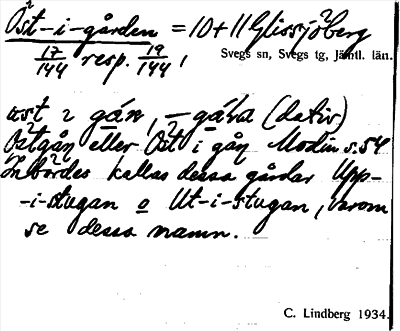 Öst-i-gården = 10 + 11 Glissjöberg
17/144 resp. 19/144,
Svegs sn, Svegs tg, Jämtl. län.
øst i gán, – gáʹva (dativ)
Östgån eller Öst i gån Modin s. 54
Inbördes kallas dessa gårdar Upp-
-i-stugan o Ut-i-stugan, varom
se dessa namn.
C. Lindberg 1934.